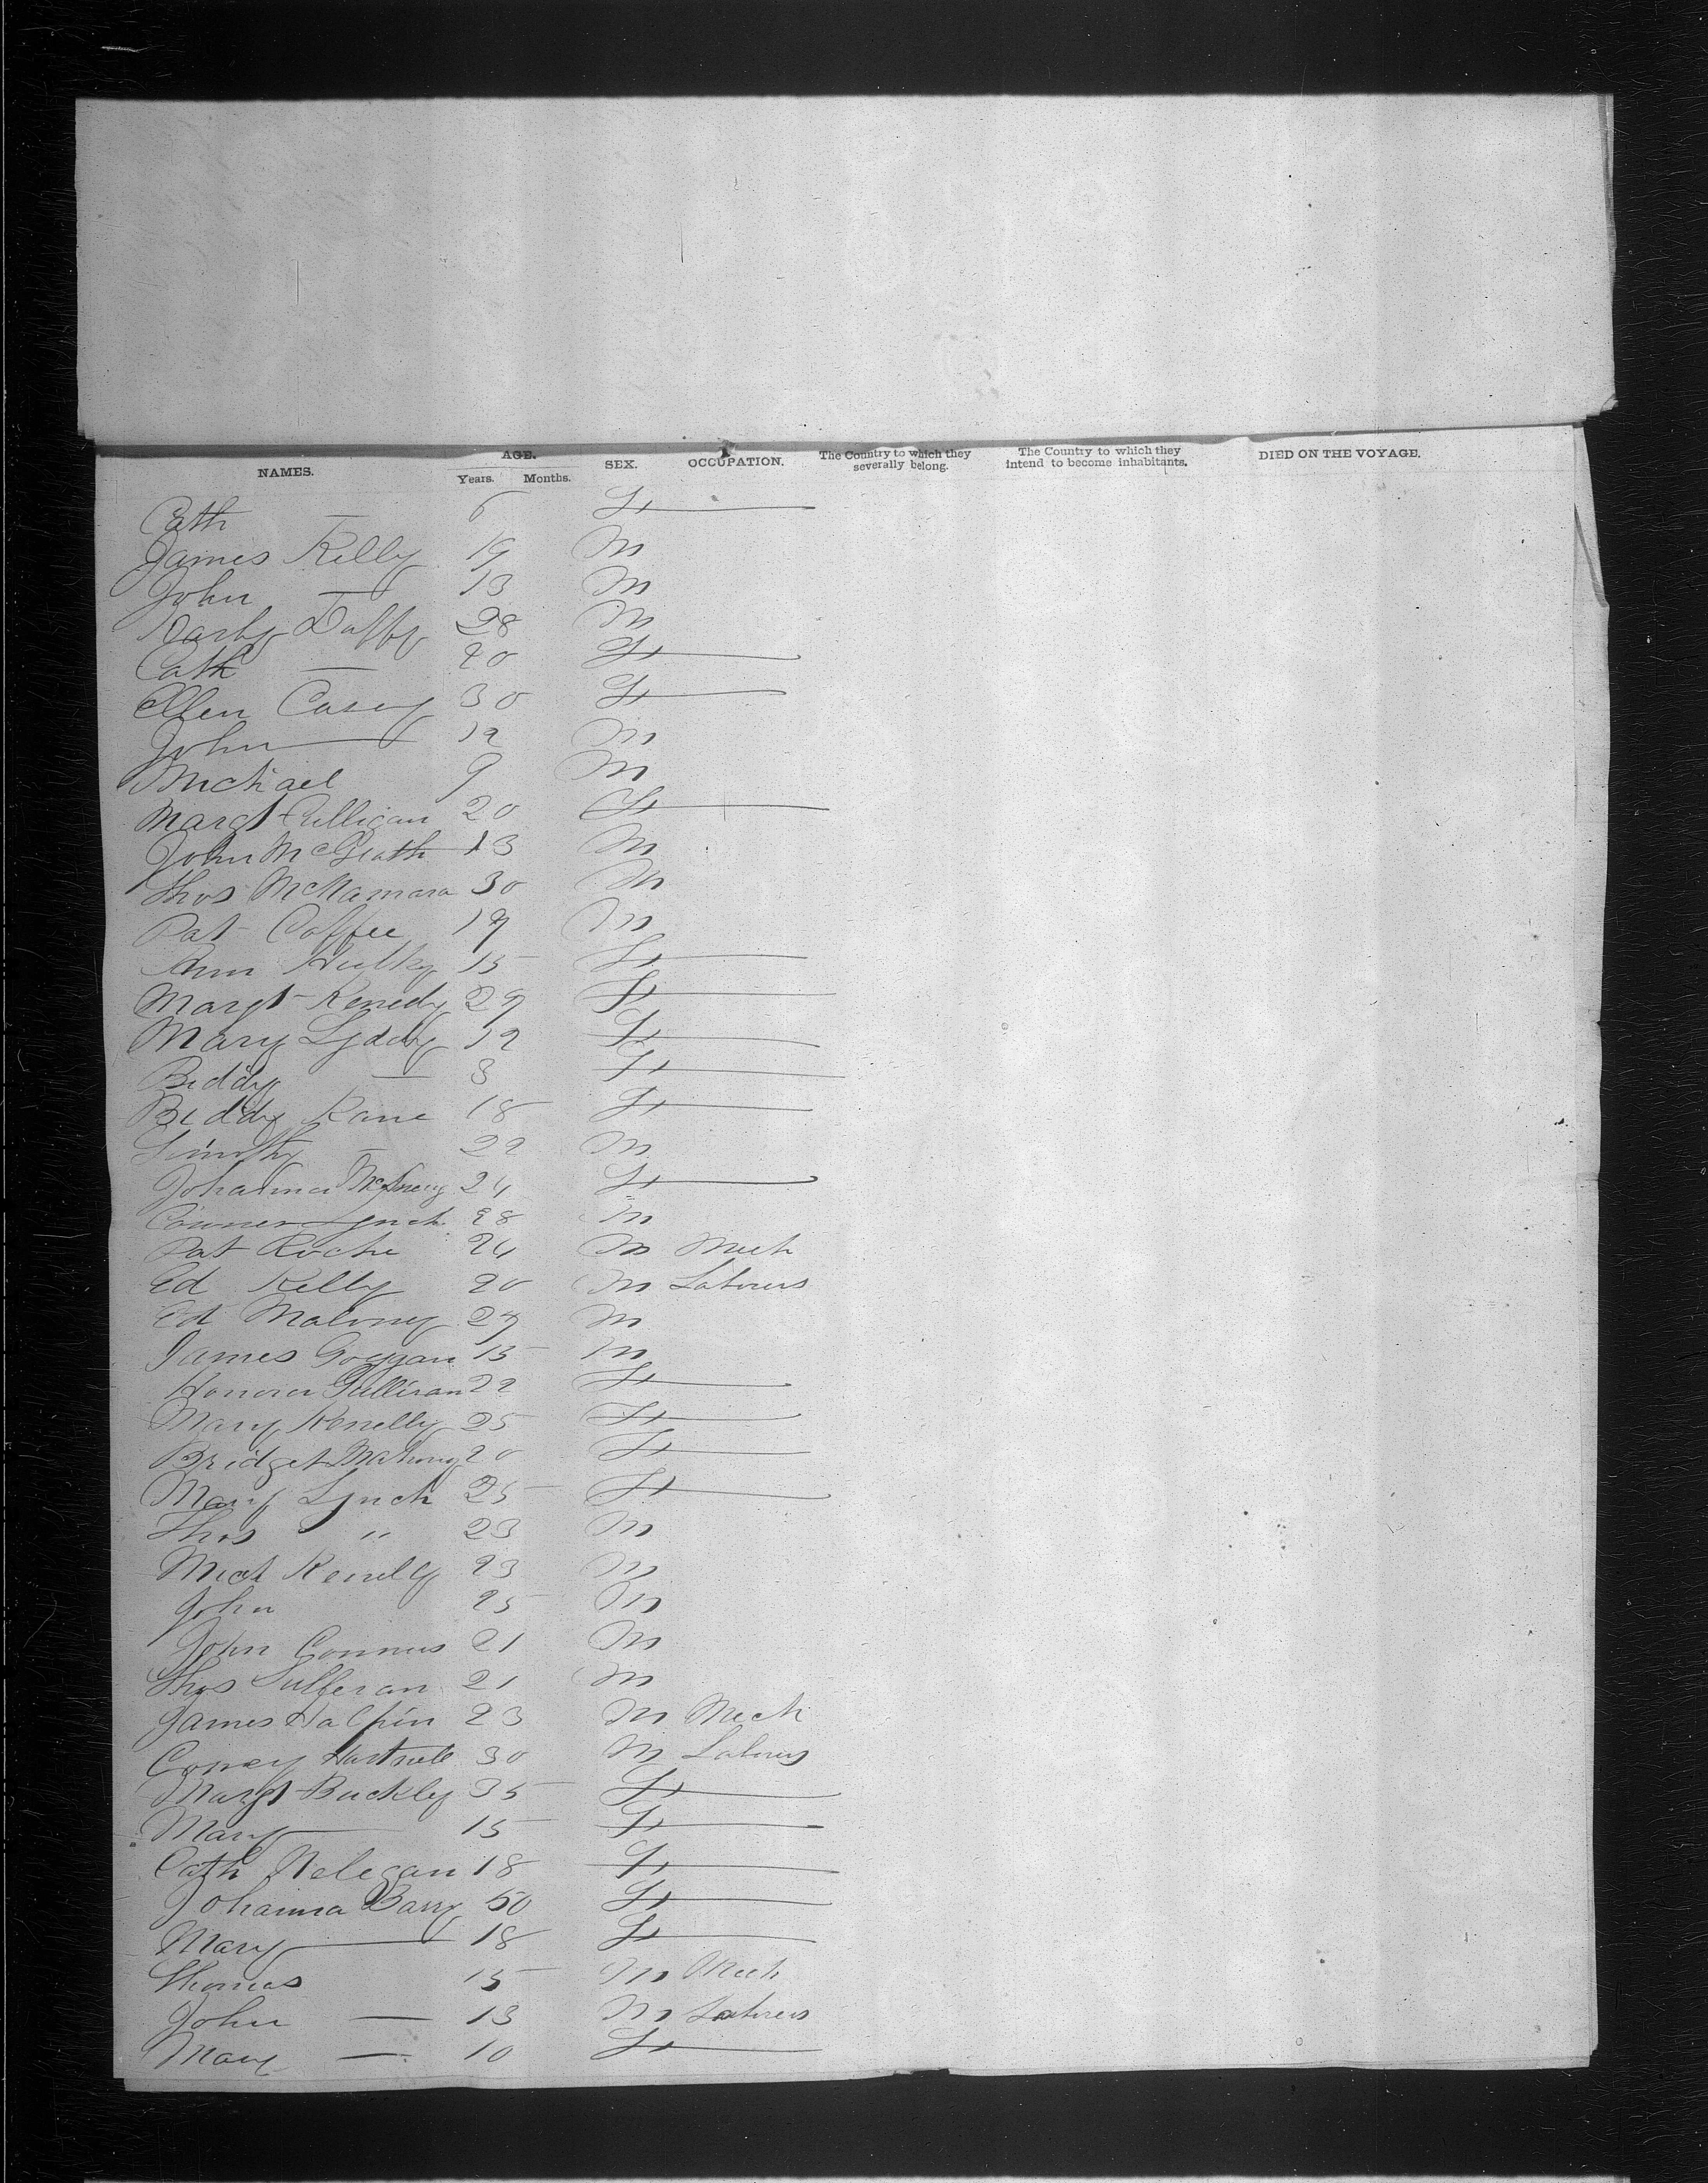 NAMES. AGE. Years. Months. SEX. OCCUPATION. The Country to which they severally belong. The Country to which they intend to become inhabitants. DIED ON THE VOYAGE.
Cath — 6 F
James Kelly 19 M
John — 13 M
Darby Duffy 28 M
Cath — 20 F
Ellen Casey 30 F
John — 12 M
Michael 9 M
Margt Culligan 20 F
John McGrath 13 M
Thos McNamara 30 M
Pat Coffee 19 M
Ann 15 F
Margt Kenedy 29 F
Mary Lyddy 12 F
Biddy — 8 F
Biddy Kane 18 F
Timothy — 22 M
Johanna 24 F
Conner Lynch 28 M
Pat Roche 24 M Mech
Ed Kelly 20 M Labourers
Ed Maloney 27 M
James Goggan 15 M
Honora Sullivan 22 F
Mary Kenelly 25 F
Bridget Mahony 20 F
Mary Lynch 25 F
Thos " 23 M
Mich Kenelly 23 M
John 25 M
John Conners 21 M
Thos Sulleran 21 M
James Halpin 23 M Mech
Hartnett 30 M Labourers
Margt Buckley 35 F
Mary — 15 F
Cath Nelegan 18 F
Johanna Barry 50 F
Mary — 18 F
Thomas 15 M Mech
John — 13 M Laborers
Mary — 10 F